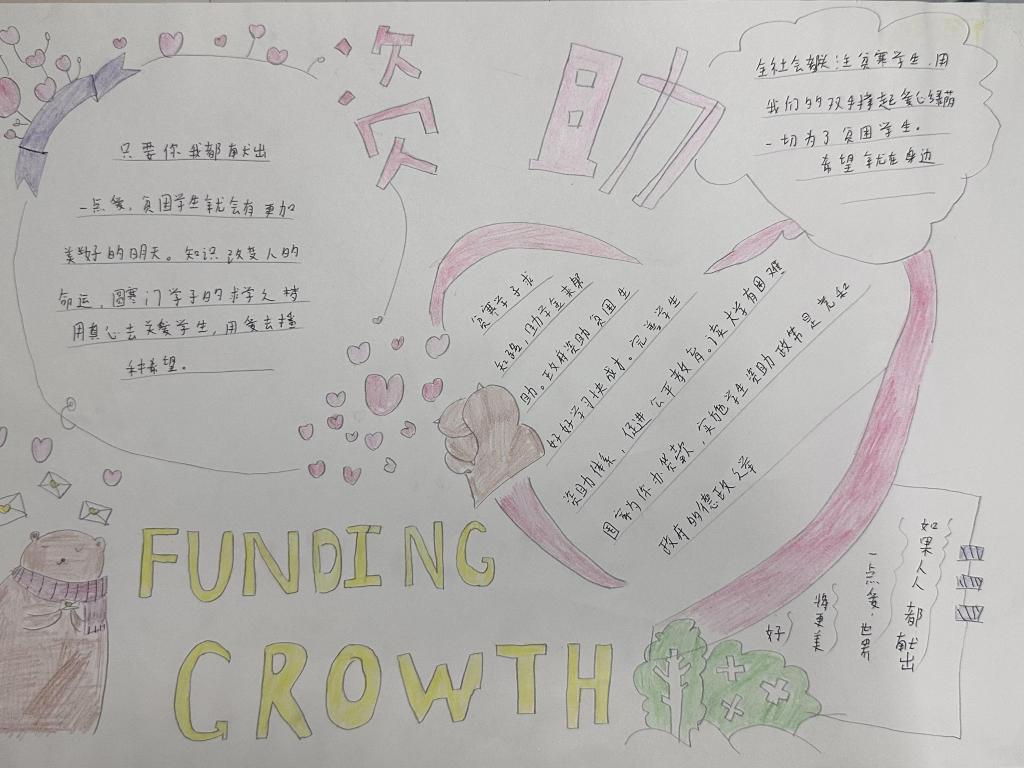 资助
只要你我都献出
一点爱，贫困学生就会有更加
美好的明天。知识改变人的
命运，圆寒门学子的求学之梦
用真心去关爱学生，用爱去播
种希望。
全社会都关注贫寒学生，用
我们的双手撑起爱心绿荫
一切为了贫困学生。
希望就在身边
贫寒学子求
知路，助学金来帮
助。政府资助贫困生
好好学习快成才。完善学生
资助体系，促进公平教育。读大学有困难
国家为你办贷款，实施学生资助政策是党和
政府的德政之举
FUNDING
GROWTH
如果人人都献出
一点爱，世界
将更美
好